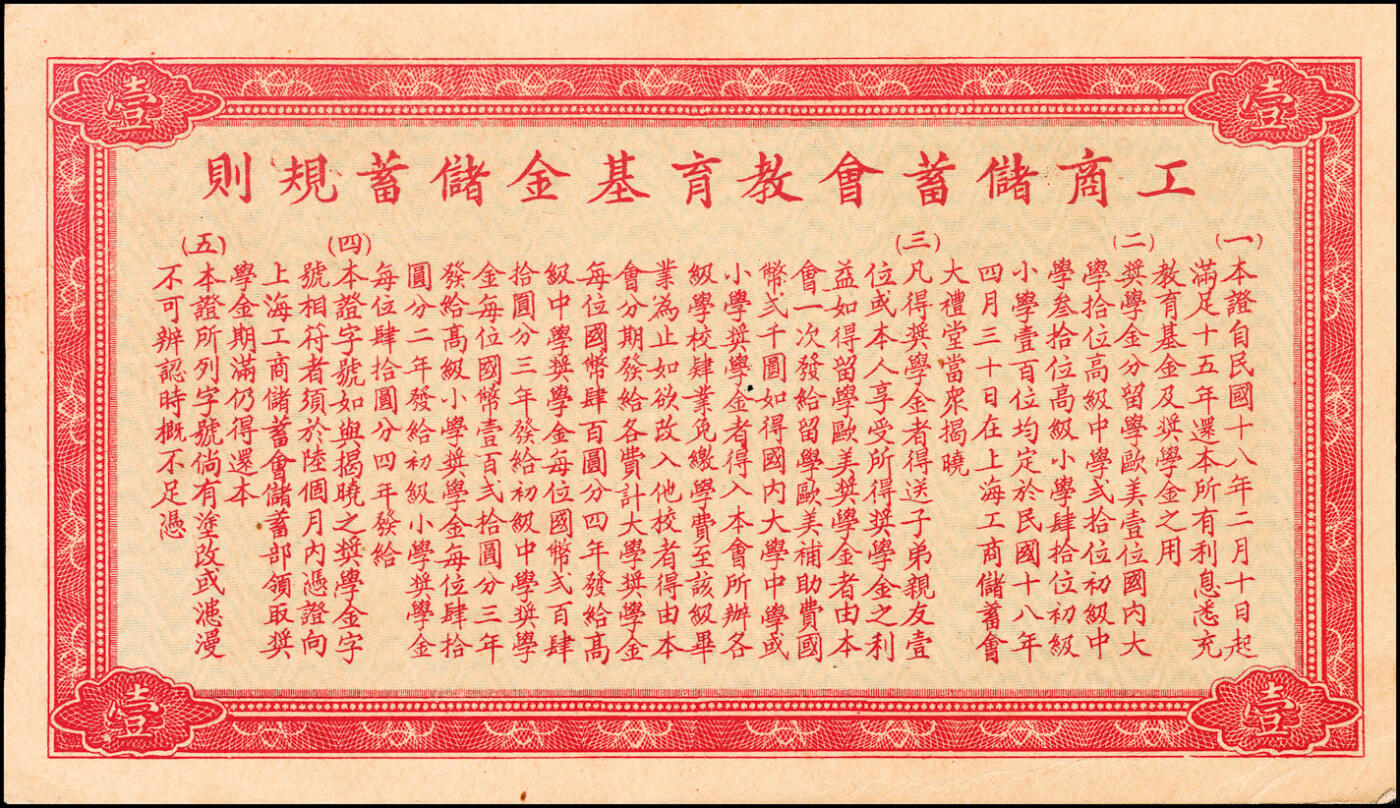 壹
壹
工商儲蓄會教育基金儲蓄規則
(一)本證自民國十八年二月十日起
滿足十五年還本所有利息悉充
教育基金及奬學金之用
(二)奬學金分留學歐美壹位國内大
學拾位高級中學弍拾位初級中
學叁拾位高級小學肆拾位初級
小學壹百位均定於民國十八年
四月三十日在上海工商儲蓄會
大禮堂當衆揭曉
(三)凡得奬學金者得送子弟親友壹
位或本人享受所得奬學金之利
益如得留學歐美奬學金者由本
會一次發給留學歐美補助費國
幣弍千圓如得國内大學中學或
小學奬學金者得入本會所辦各
級學校肄業免繳學費至該級畢
業為止如欲改入他校者得由本
會分期發給各費計大學奬學金
每位國幣肆百圓分四年發給高
級中學奬學金每位國幣弍百肆
拾圓分三年發給初級中學奬學
金每位國幣壹百弍拾圓分三年
發給高級小學奬學金每位肆拾
圓分二年發給初級小學奬學金
每位肆拾圓分四年發給
(四)本證字號如與揭曉之奬學金字
號相符者須於陸個月内憑證向
上海工商儲蓄會儲蓄部領取奬
學金期滿仍得還本
(五)本證所列字號倘有塗改或漶漫
不可辦認時概不足憑
壹
壹